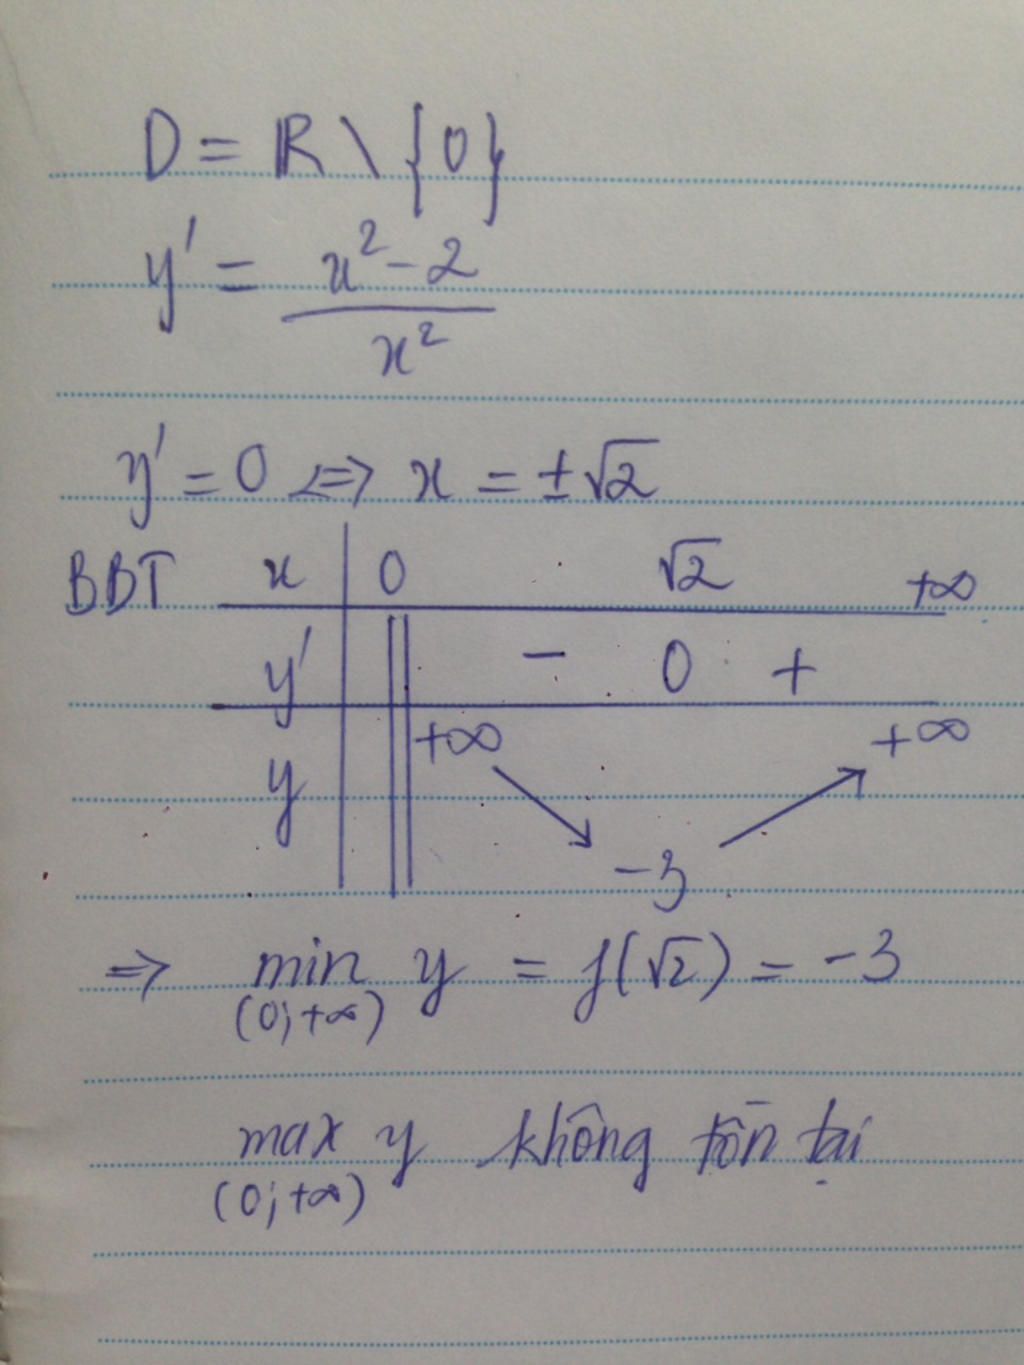 D = ℝ \ {0}
y' = x² - 2 / x²
y' = 0 <=> x = ±√2
BBT x 0 √2 +∞
y' - 0 +
y +∞ -3 +∞
=> min y = f(√2) = -3
(0; +∞)
max y không tồn tại
(0; +∞)